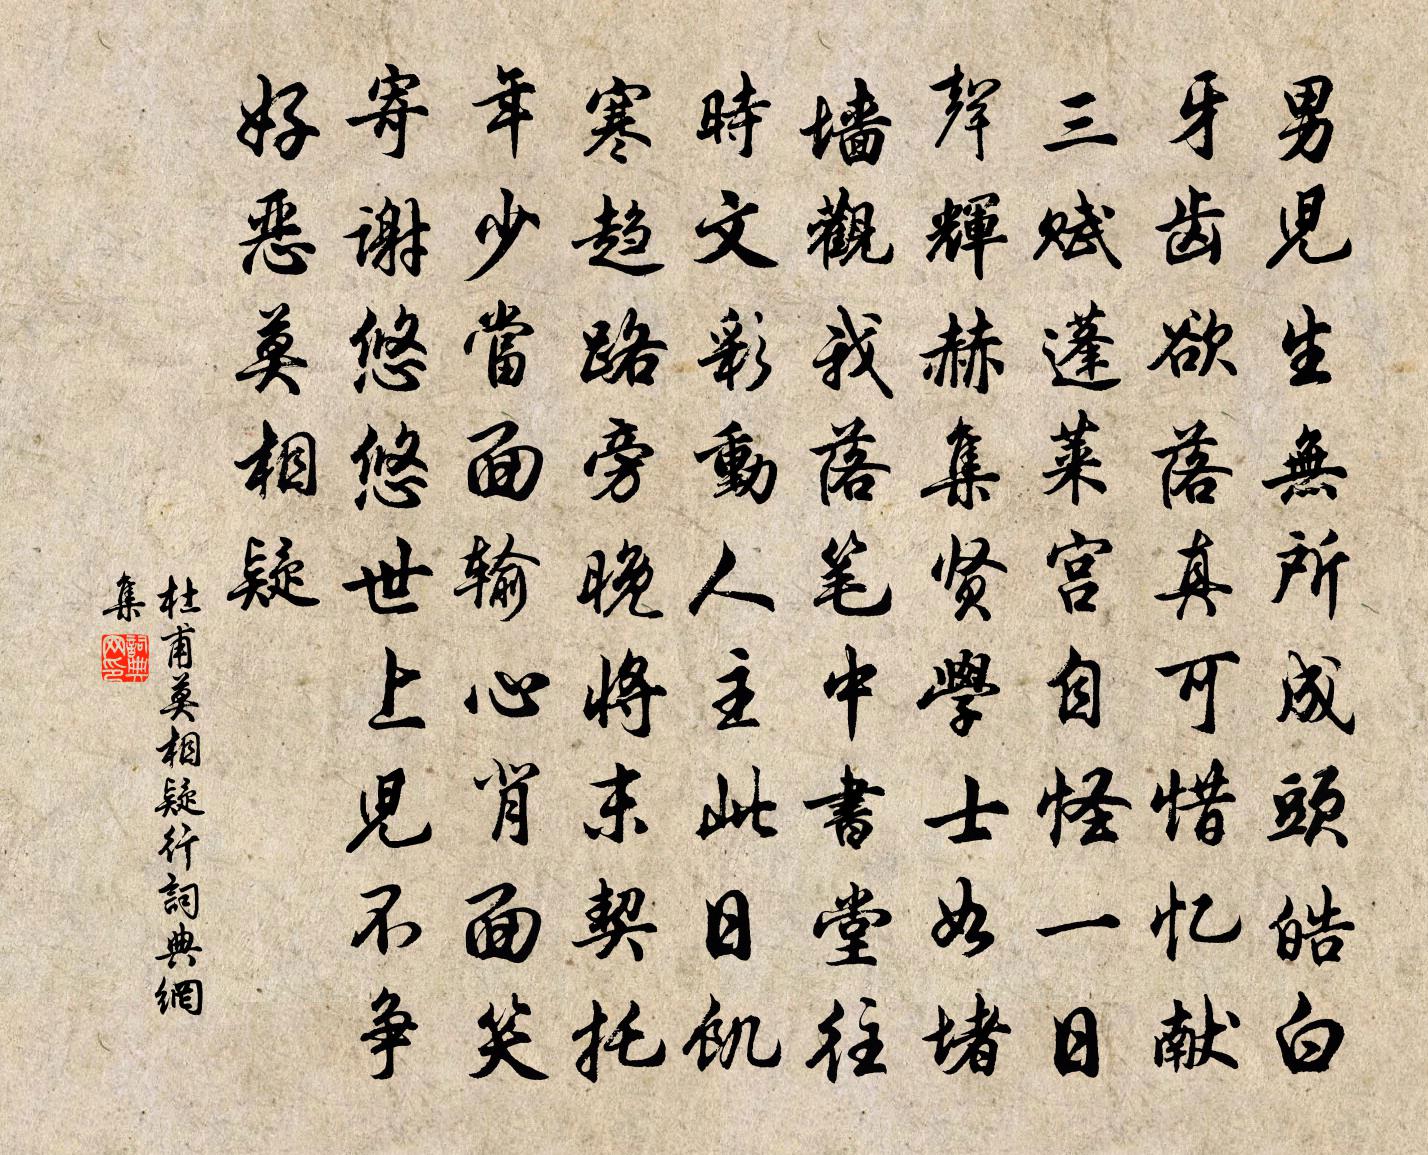 男児生無所成頭皓白
牙齿欲落真可惜忆献
三赋蓬莱宫自怪一日
聲輝赫集贤學士如堵
墙觀我落笔中書堂往
時文彩動人主此日饥
寒趋路旁晚将末契托
年少當面输心背面笑
寄谢悠悠世上児不争
好恶莫相疑
杜甫莫相疑行詞典網
集
詞典网印